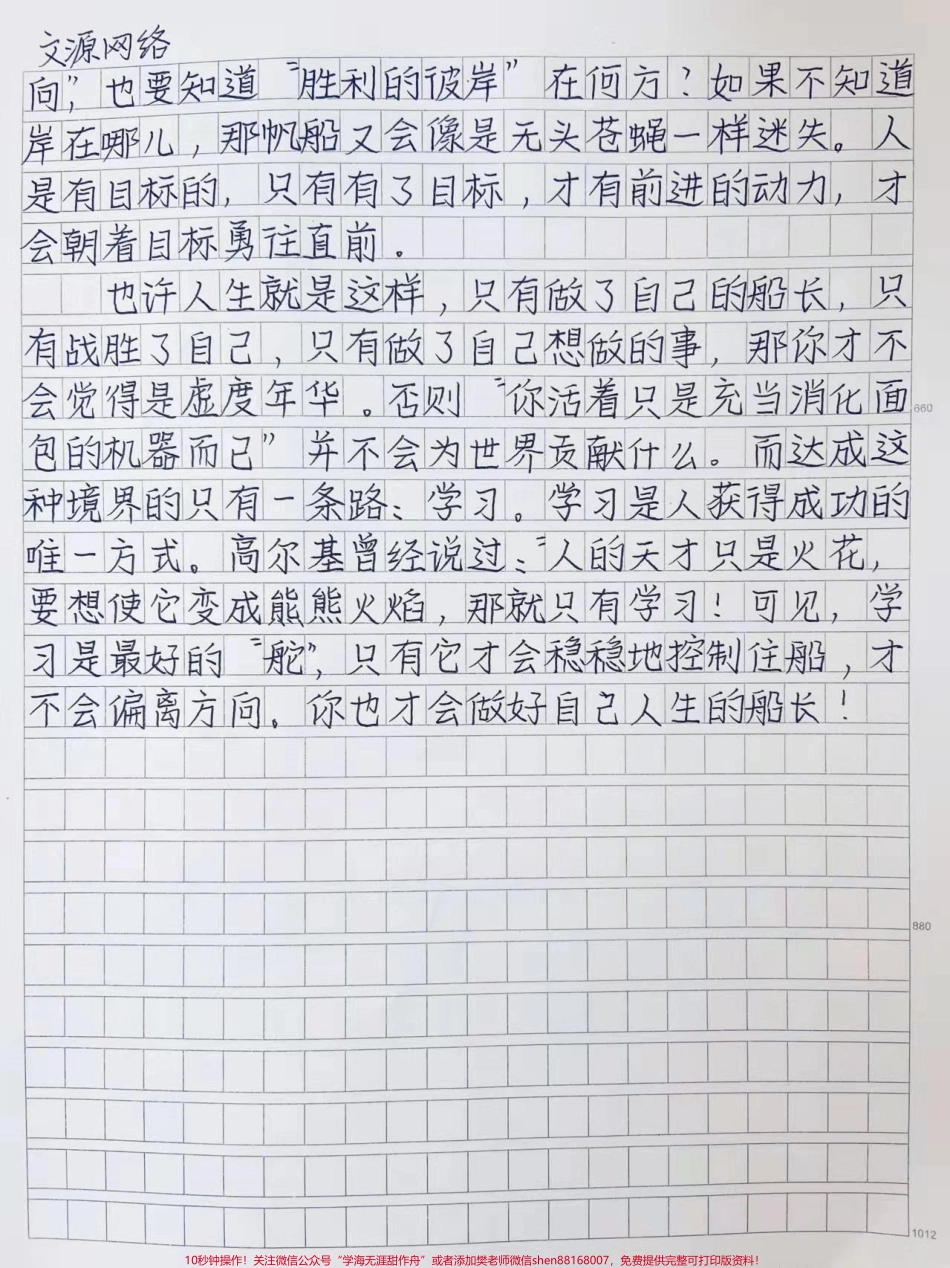 文源网络
向”，也要知道“胜利的彼岸”在何方？如果不知道
岸在哪儿，那帆船又会像是无头苍蝇一样迷失。人
是有目标的，只有有了目标，才有前进的动力，才
会朝着目标勇往直前。
也许人生就是这样，只有做了自己的船长，只
有战胜了自己，只有做了自己想做的事，那你才不
会觉得是虚度年华。否则“你活着只是充当消化面
660
包的机器而已”并不会为世界贡献什么。而达成这
种境界的只有一条路：学习。学习是人获得成功的
唯一方式。高尔基曾经说过：“人的天才只是火花，
要想使它变成熊熊火焰，那就只有学习！可见，学
习是最好的“舵”，只有它才会稳稳地控制住船，才
不会偏离方向。你也才会做好自己人生的船长！
880
1012
10秒钟操作！关注微信公众号“学海无涯甜作舟”或者添加樊老师微信shen88168007，免费提供完整可打印版资料！